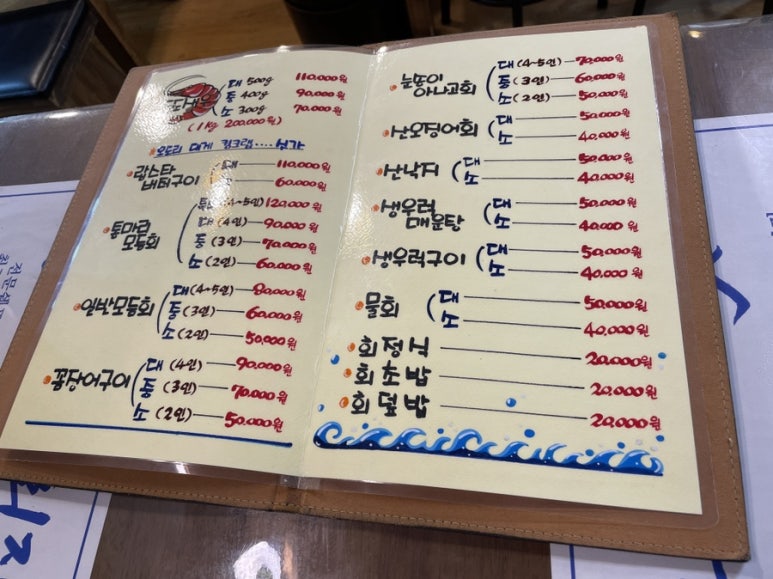 대 500g 110,000원
중 400g 90,000원
소 300g 70,000원
(1kg 200,000원)
오도리 대게 킹크랩....싯가
랍스타 버터구이
대 110,000원
소 60,000원
통마리 모듬회
특대(4~5인) 120,000원
대 (4인) 90,000원
중 (3인) 70,000원
소 (2인) 60,000원
일반모듬회
대(4~5인) 80,000원
중 (3인) 60,000원
소 (2인) 50,000원
꼼장어구이
대 (4인) 90,000원
중 (3인) 70,000원
소 (2인) 50,000원
눈송이 아나고회
대 (4~5인) 70,000원
중 (3인) 60,000원
소 (2인) 50,000원
산오징어회
대 50,000원
소 40,000원
산낙지
대 50,000원
소 40,000원
생우럭 매운탕
대 50,000원
소 40,000원
생우럭구이
대 50,000원
소 40,000원
물회
대 50,000원
소 40,000원
회정식 20,000원
회초밥 20,000원
회덮밥 20,000원